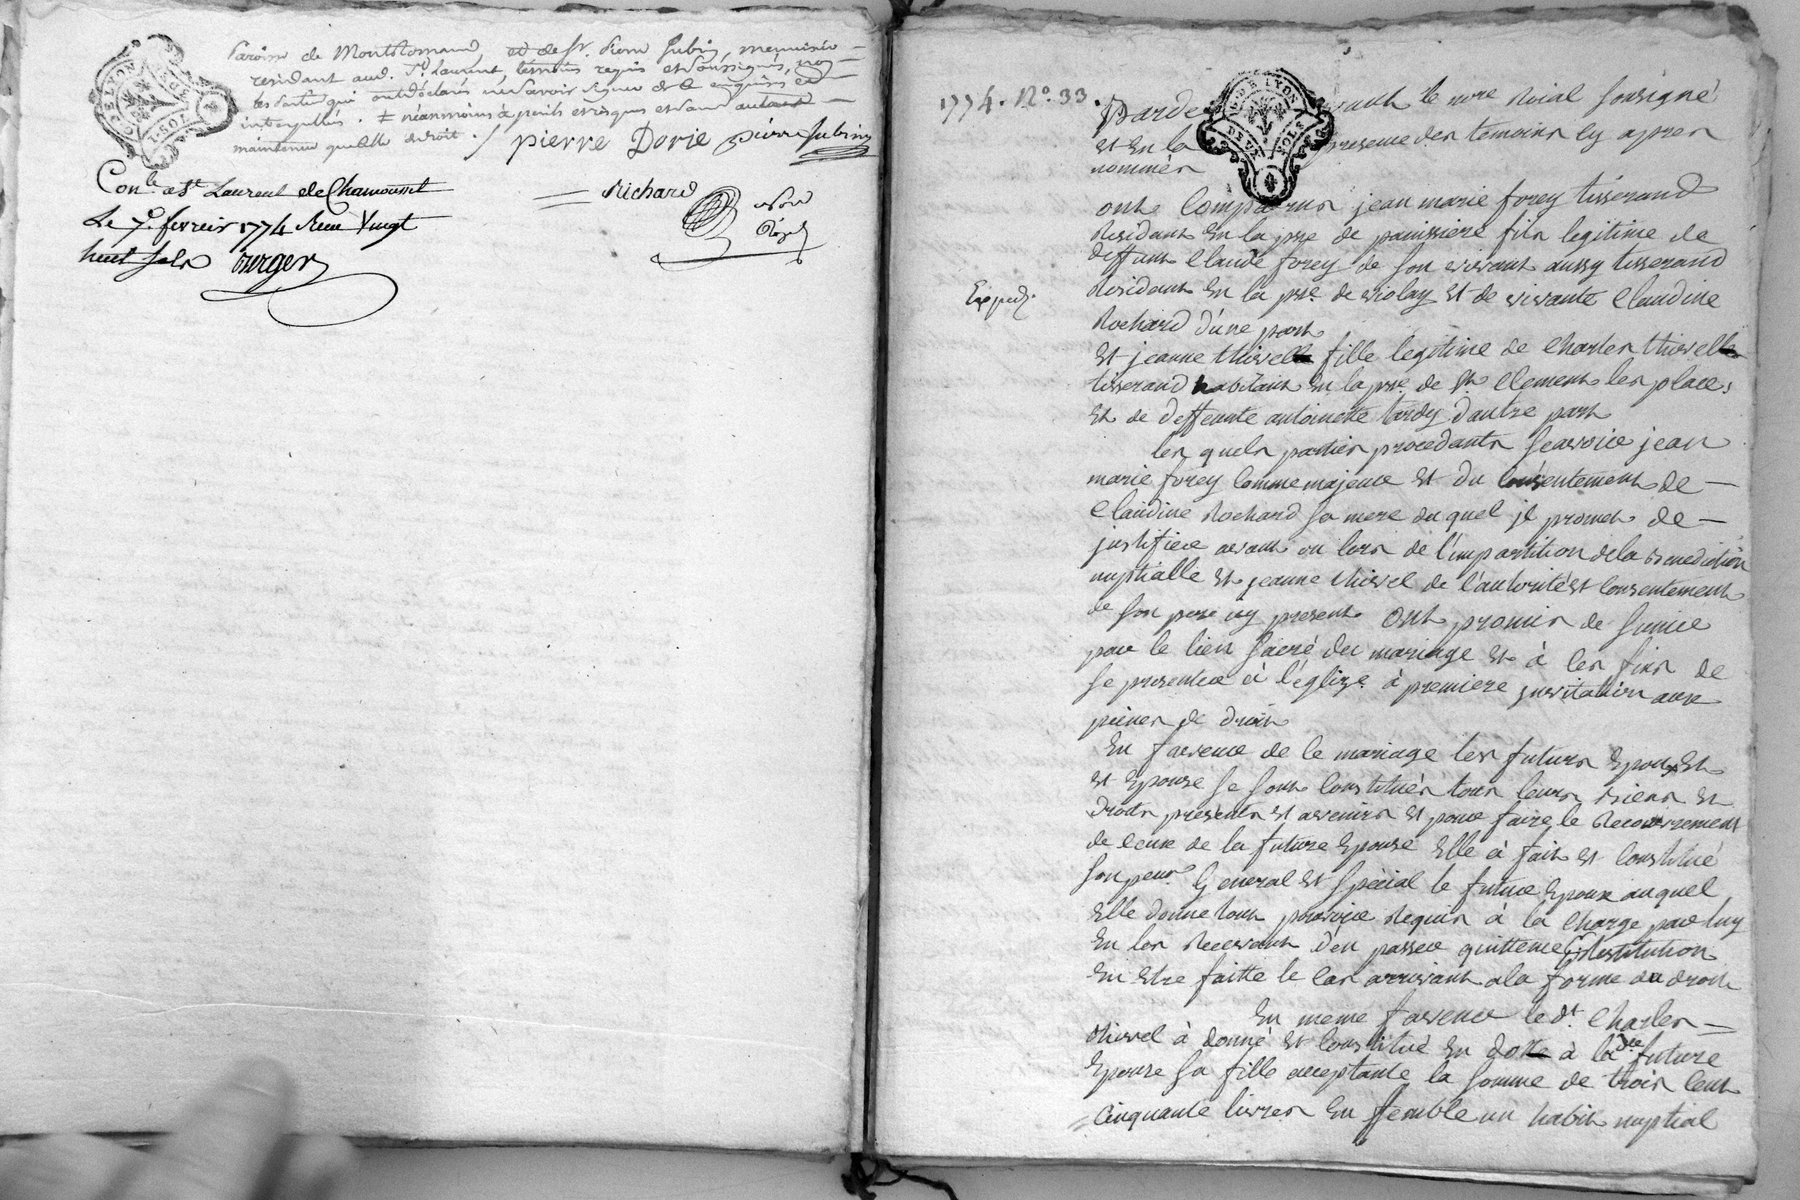 paroisse de Montromand, et de Sr. pierre Jubin, menuisier
residant aud. St. Laurent, temoins requis et soussignés, non
les parties qui ont déclarés ne savoir signer de ce enquises et
interpellés. ≠ néanmoins à perils et risques et sans autant
maintenue que de droit. /
pierre Dorie pierre Jubin
Richard
Conlé a St Laurent de Chamousset
Le 7e. fevrier 1774 Reçu Vingt
huit sols Burger
GDE LYON
DEVX SOLS
1774. No. 33.
Expedé.
Pardevant le nore Roial soussigné
et en la presence des temoins cy apres
nommés
ont comparus jean marie forey tisserand
Residant en la pse de panissiere fils legitime de
deffunt Claude forey de son vivant aussy tisserand
Residant en la pse de violay et de vivante Claudine
Rochard d'une part
et jeanne thivell fille legitime de Charles thivell
tisserand habitant en la pse de st Clement les places
et de deffeunte antoinette tardy d'autre part
les quels parties procedants scavoir jean
marie forey comme majeur et du consentement de
Claudine Rochard sa mere du quel jl promet de
justifier avant ou lors de l'impartition de la benediction
nuptialle et jeanne thivel de l'autorité et consentement
de son pere icy present ont promis de s'unir
par le lien sacré du mariage et à ces fins de
se presenter à l'églize à premiere invitation aux
peines de droit
En faveur de ce mariage les futurs epoux et
et epouse se sont constitués tous leurs biens et
droits présents et avenirs et pour faire le Recouvrement
de ceux de la future epouse elle à fait et constitué
son peur. General et spécial le futur epoux auquel
elle donne tout pouvoir Requis à la charge par luy
en les Recevant d'en passer quittence & Restitution
en etre faitte le cas arrivant a la forme du droit
En meme faveur le dt. Charles
thivel à donné et constitué en dotte à la dte future
epouse sa fille acceptante la somme de trois cent
cinquante livres ensemble un habit nuptial